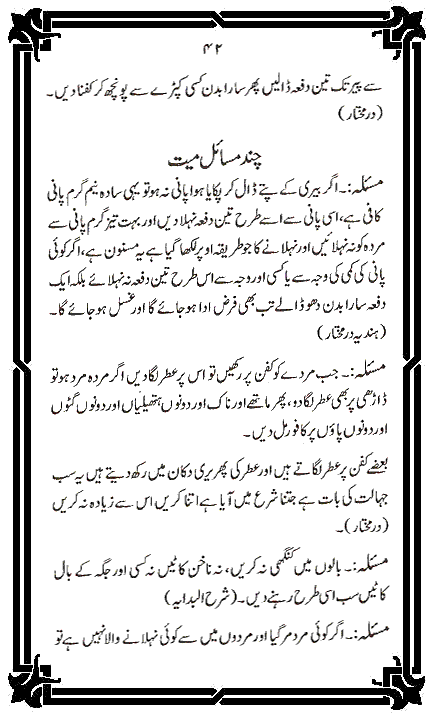 ۴۲
سے پیر تک تین دفعہ ڈالیں پھر سارا بدن کسی کپڑے سے پونچھ کر کفنا دیں۔
(در مختار)
چند مسائل میت
مسئلہ:۔ اگر بیری کے پتے ڈال کر پکایا ہوا پانی نہ ہو تو یہی سادہ نیم گرم پانی
کافی ہے، اسی پانی سے اسے طرح تین دفعہ نہلا دیں اور بہت تیز گرم پانی سے
مردہ کو نہ نہلائیں اور نہلانے کا جو طریقہ اوپر لکھا گیا ہے یہ مسنون ہے، اگر کوئی
پانی کی کمی کی وجہ سے یا کسی اور وجہ سے اس طرح تین دفعہ نہ نہلائے بلکہ ایک
دفعہ سارا بدن دھو ڈالے تب بھی فرض ادا ہو جائے گا اور غسل ہو جائے گا۔
(ہندیہ در مختار)
مسئلہ:۔ جب مردے کو کفن پر رکھیں تو اس پر عطر لگا دیں اگر مردہ مرد ہو تو
ڈاڑھی پر بھی عطر لگا دو، پھر ماتھے اور ناک اور دونوں ہتھیلیاں اور دونوں گٹوں
اور دونوں پاؤں پر کافور مل دیں۔
بعضے کفن پر عطر لگاتے ہیں اور عطر کی پھریری دکان میں رکھ دیتے ہیں یہ سب
جہالت کی بات ہے جتنا شرع میں آیا ہے اتنا کریں اس سے زیادہ نہ کریں
(در مختار)۔
مسئلہ:۔ بالوں میں کنگھی نہ کریں، نہ ناخن کاٹیں نہ کسی اور جگہ کے بال
کاٹیں سب اسی طرح رہنے دیں۔ (شرح البدایہ)
مسئلہ:۔ اگر کوئی مرد مر گیا اور مردوں میں سے کوئی نہلانے والا نہیں ہے تو